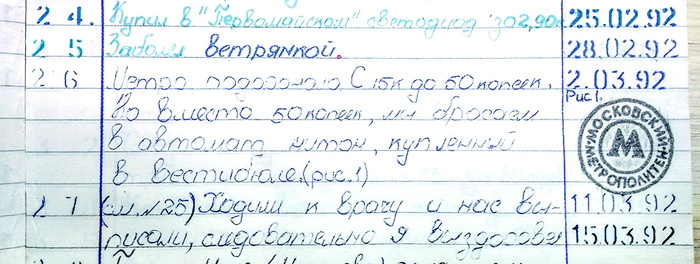 24. Купил в "Первомайском" светодиод за 2,90к 25.02.92
25 Заболел ветрянкой. 28.02.92
26 Метро подорожало. С 15к до 50 копеек. 2.03.92
Но вместо 50 копеек, мы бросаем Рис 1.
в автомат житон, купленный
в вестибюле.(рис.1)
МОСКОВСКИЙ
М
МЕТРОПОЛИТЕН
27 (см. №25) Ходили к врачу и нас вы- 11.03.92
писали, следовательно я выздоровел 15.03.92